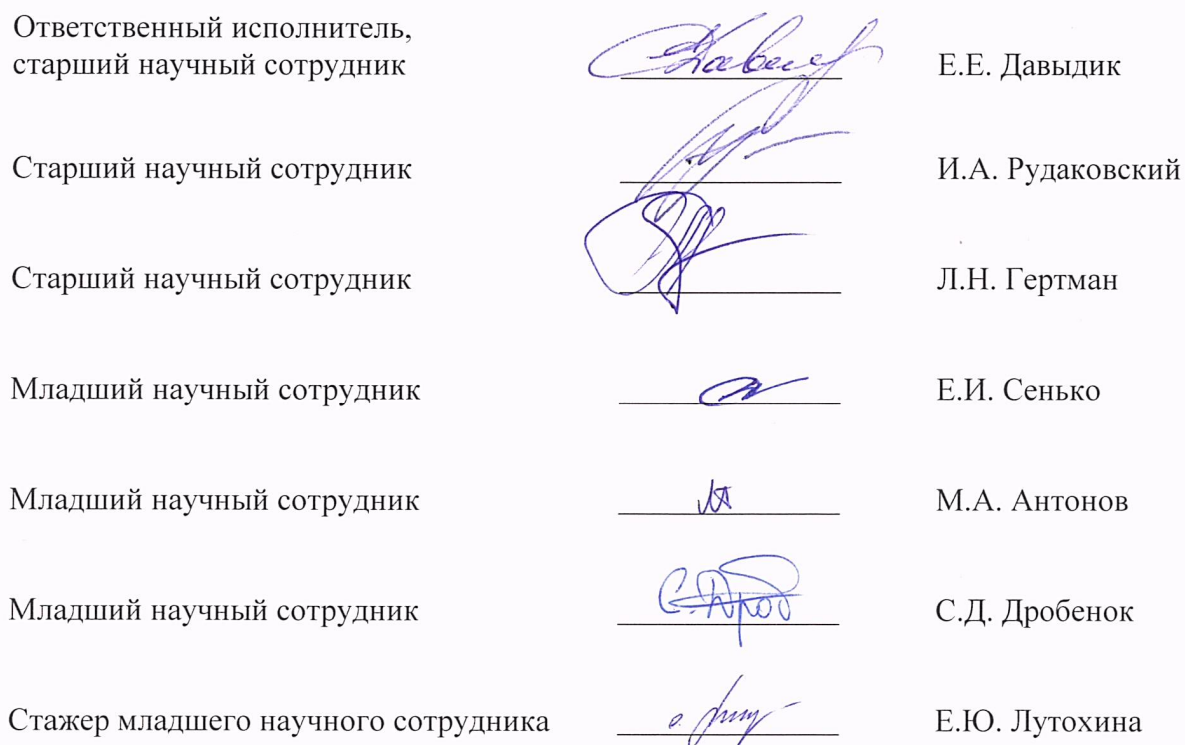 Ответственный исполнитель,
старший научный сотрудник Е.Е. Давыдик
Старший научный сотрудник И.А. Рудаковский
Старший научный сотрудник Л.Н. Гертман
Младший научный сотрудник Е.И. Сенько
Младший научный сотрудник М.А. Антонов
Младший научный сотрудник С.Д. Дробенок
Стажер младшего научного сотрудника Е.Ю. Лутохина